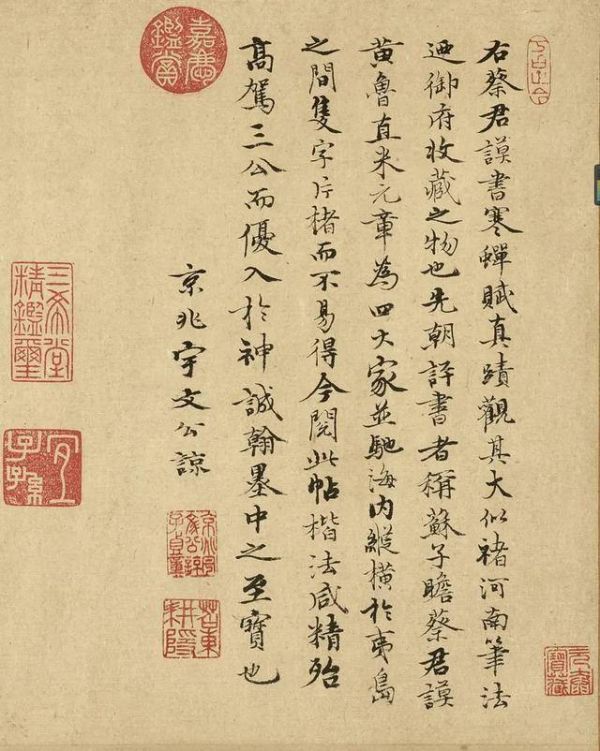 右蔡君謨書寒蟬賦真蹟觀其大似褚河南筆法
迺御府收藏之物也先朝評書者稱蘇子瞻蔡君謨
黃魯直米元章為四大家並馳海内縱橫於夷島
之間隻字片楮而不易得今閱此帖楷法咸精殆
髙駕三公而優入於神誠翰墨中之至寶也
京兆宇文公諒
嘉慶鑑賞
三希堂精鑑璽
宜子孫